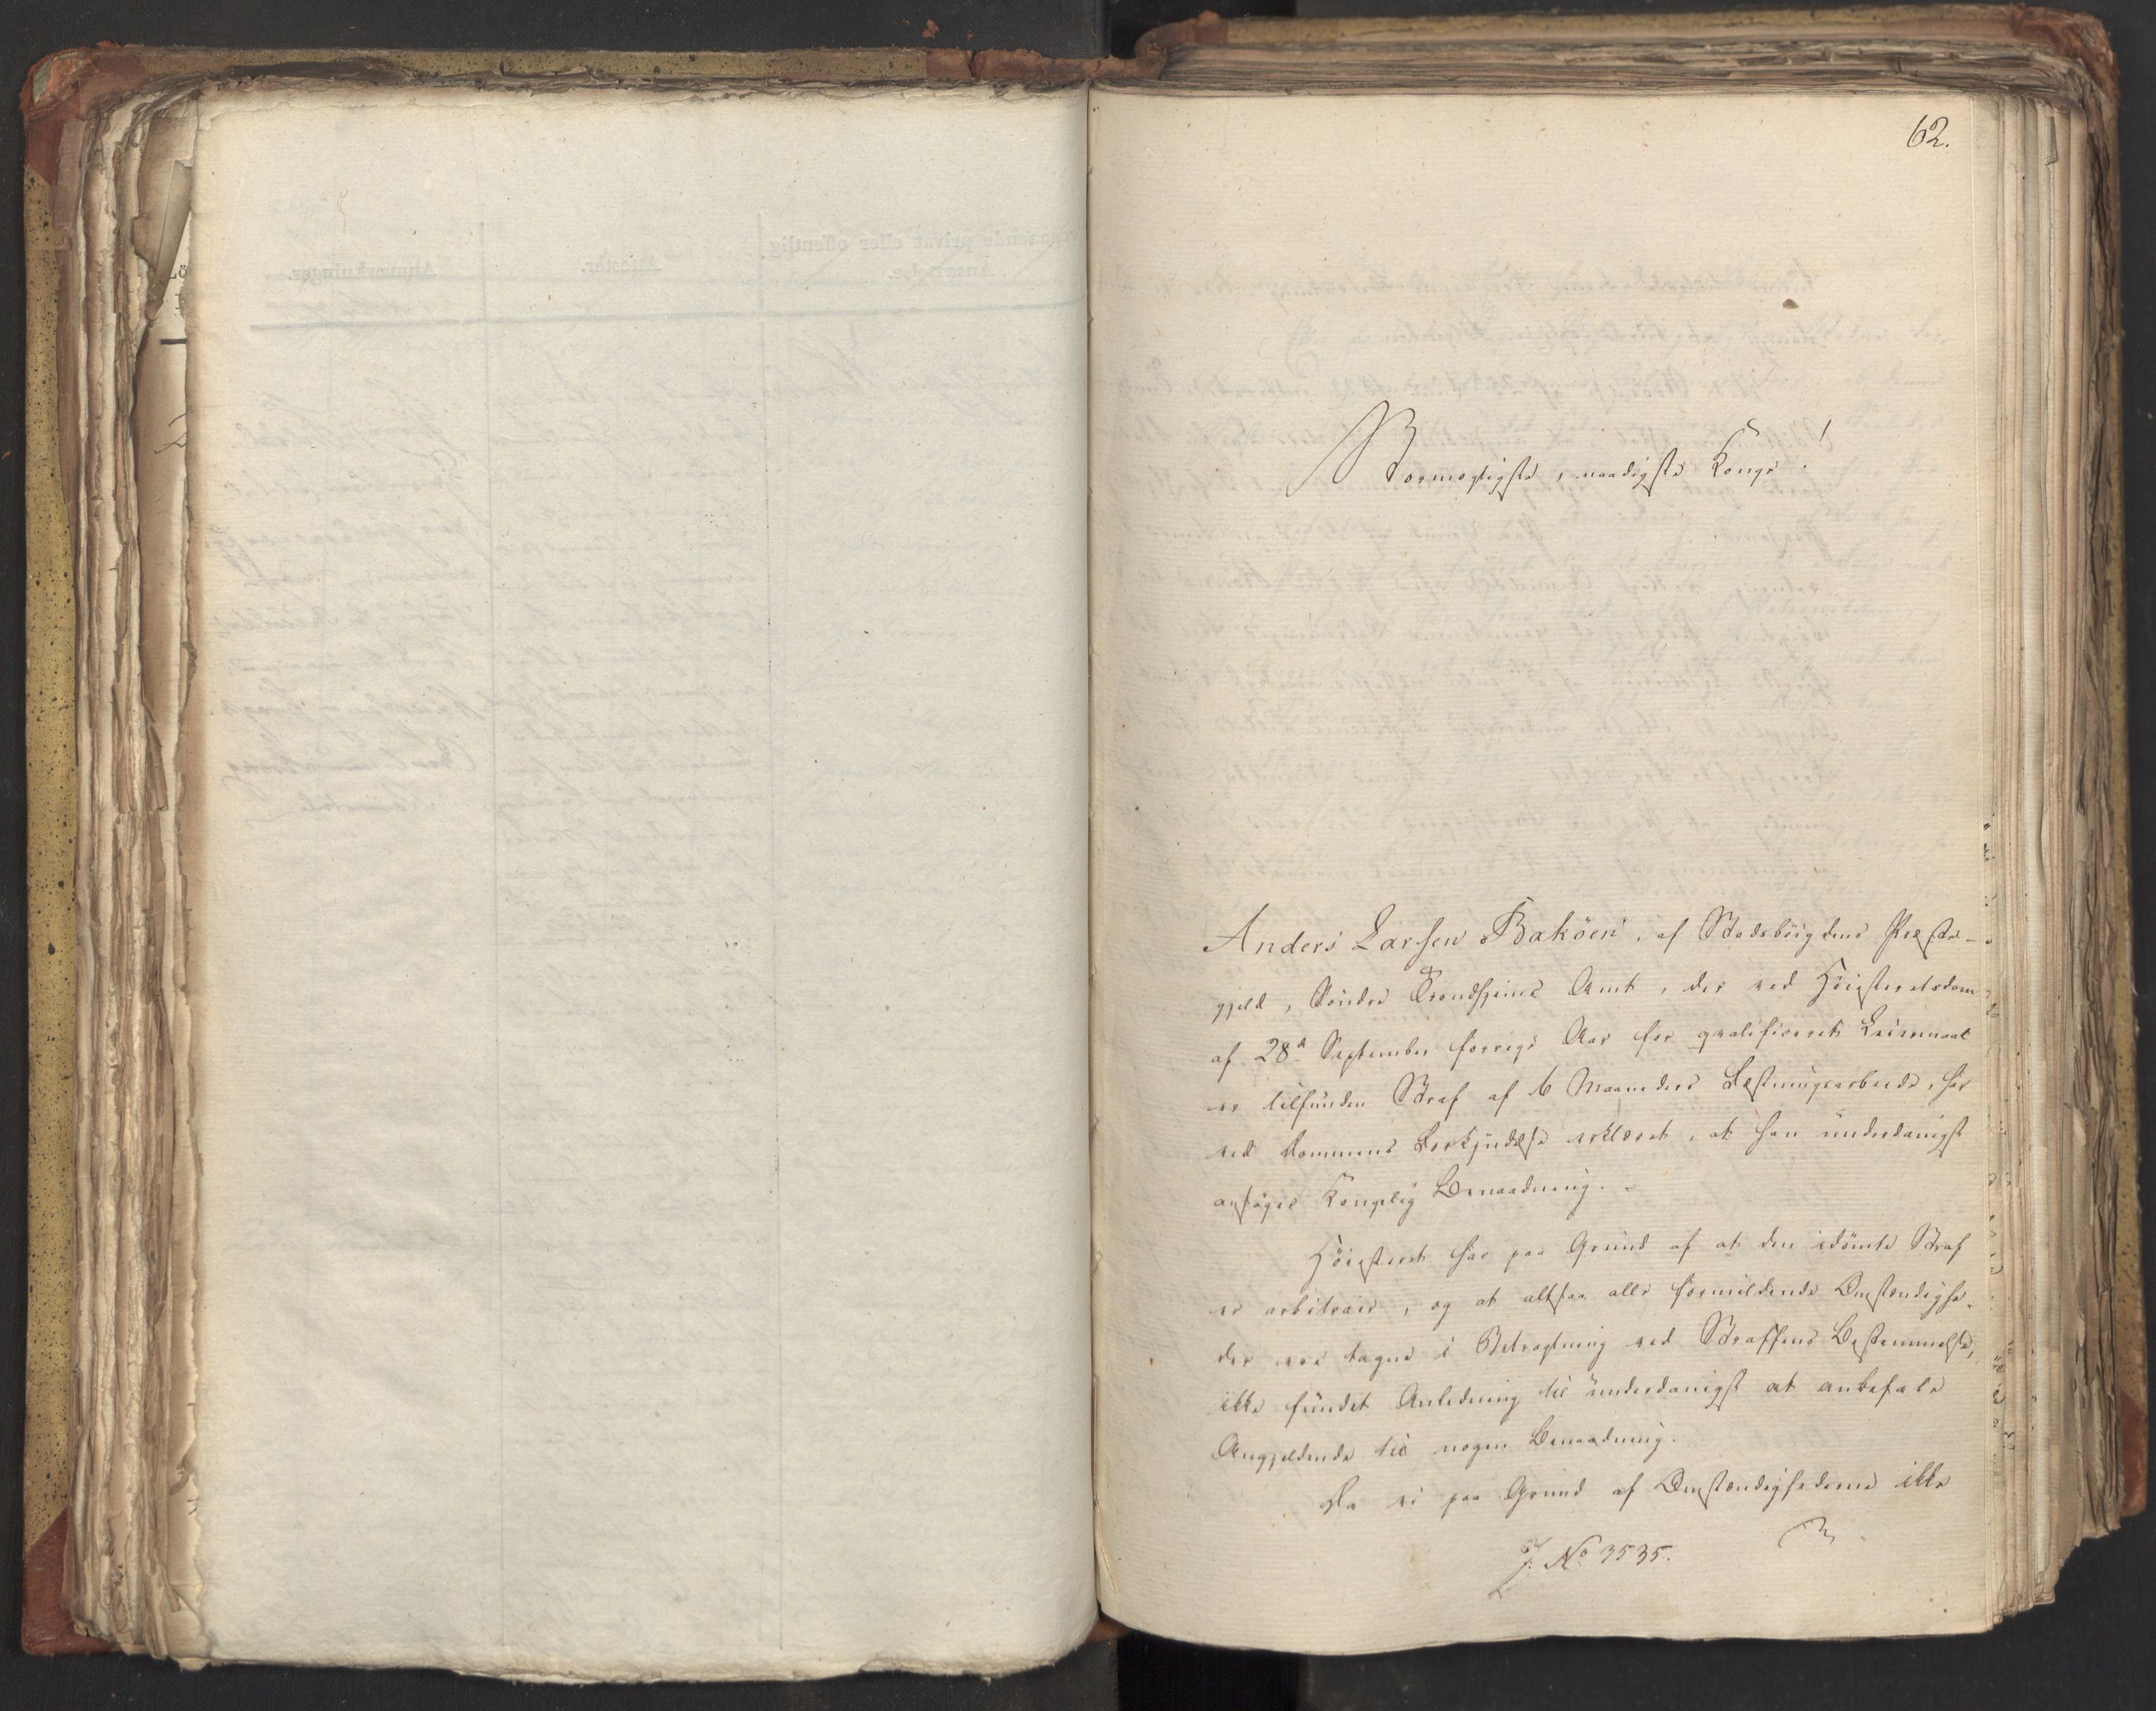 62.
Stormægtigste, naadigste Konge!
Anders Larsen Bakøen, af Stadsbøigdens Præste-
gjeld, Søndre Trondhjems Amt, der ved Høiesteretsdom
af 28de September forrige Aar for qvalificeret Leiermaal
er tilfunden Straf af 6 Maaneders Fæstningsarbeide, har
ved Dommens Forkyndelse erklæret, at han underdanigst
ansøger Kongelig Benaadning.
Høiesteret har paa Grund af at den idømte Straf
er arbitrair, og at altsaa alle formildende Omstændighe-
der ere tagne i Betragtning ved Straffens Bestemmelse,
ikke fundet Anledning til underdanigst at anbefale
Angjeldende til nogen Benaadning.
Da vi paa Grund af Omstændighederne ikke
J. No 3535.